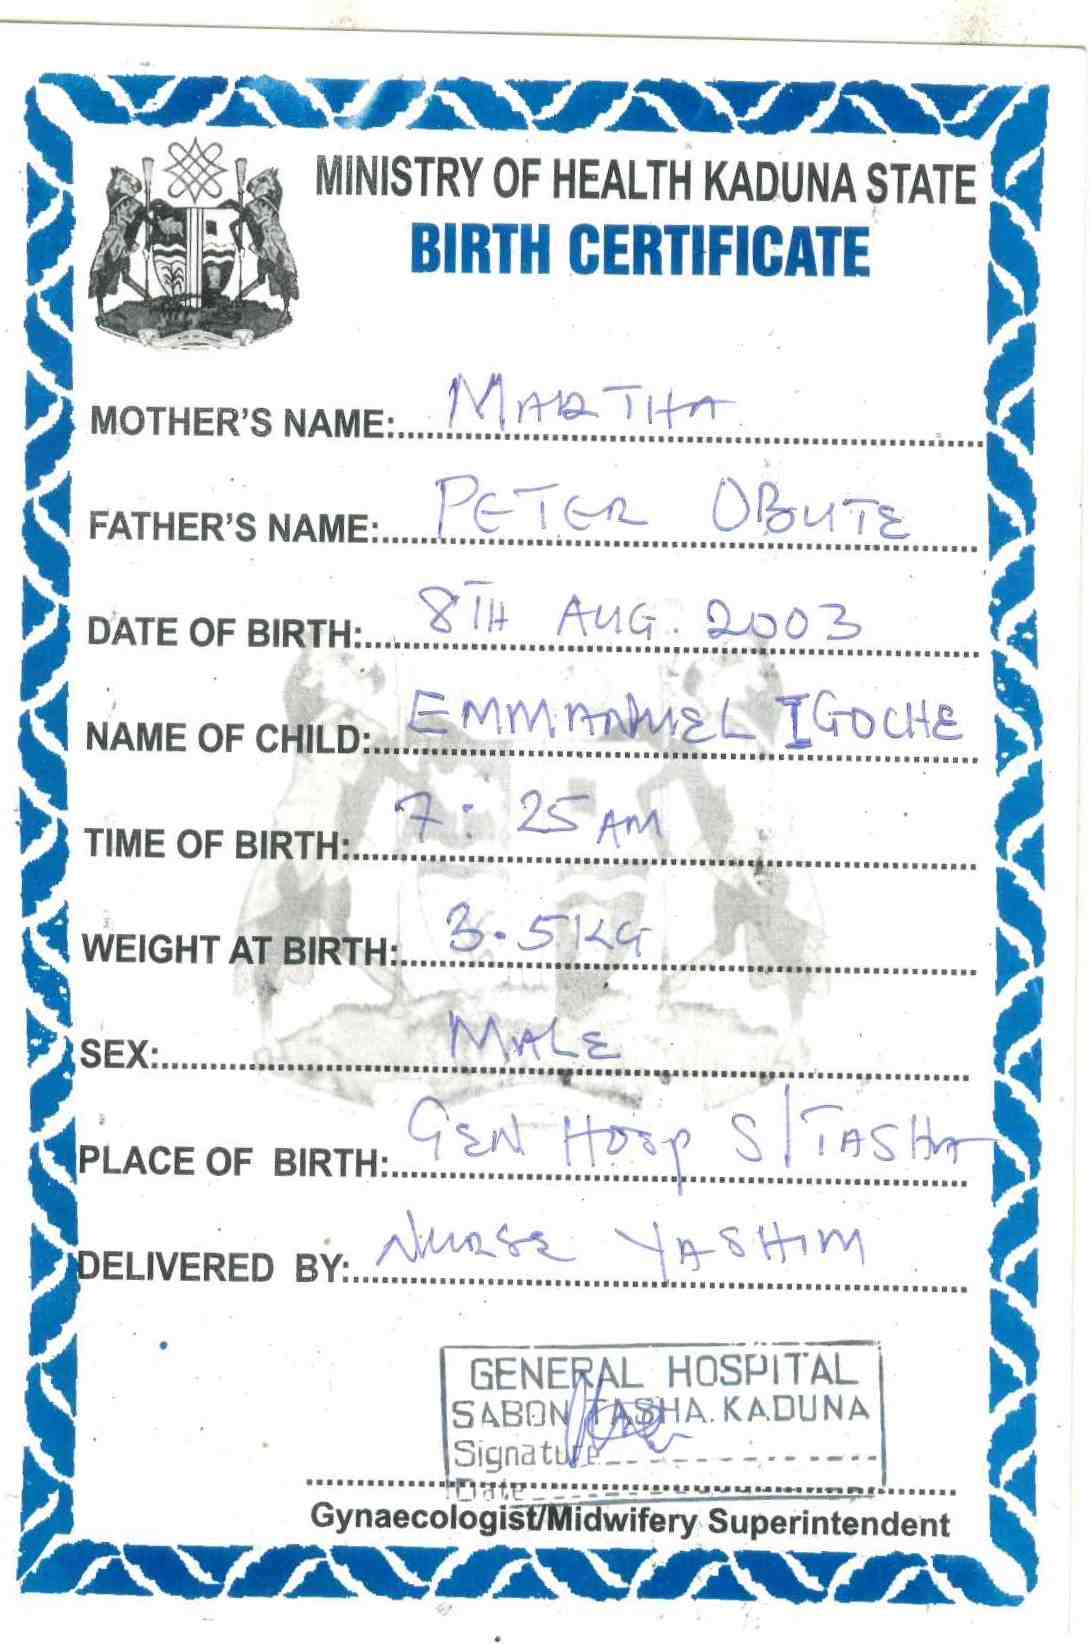 MINISTRY OF HEALTH KADUNA STATE
BIRTH CERTIFICATE
MOTHER'S NAME: MARTHA
FATHER'S NAME: PETER OBUTE
DATE OF BIRTH: 8TH AUG. 2003
NAME OF CHILD: EMMANUEL IGOCHE
TIME OF BIRTH: 7:25 AM
WEIGHT AT BIRTH: 3.5KG
SEX: MALE
PLACE OF BIRTH: GEN HOSP S/TASHA
DELIVERED BY: NURSE YASHIM
GENERAL HOSPITAL
SABON TASHA. KADUNA
Signature
Date
Gynaecologist/Midwifery Superintendent